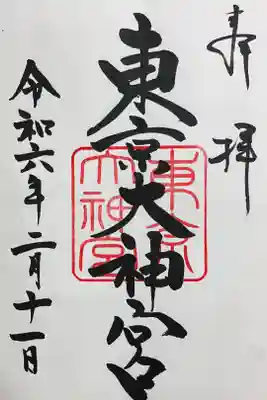 奉拝
東京大神宮
東京大神宮
令和六年二月十一日